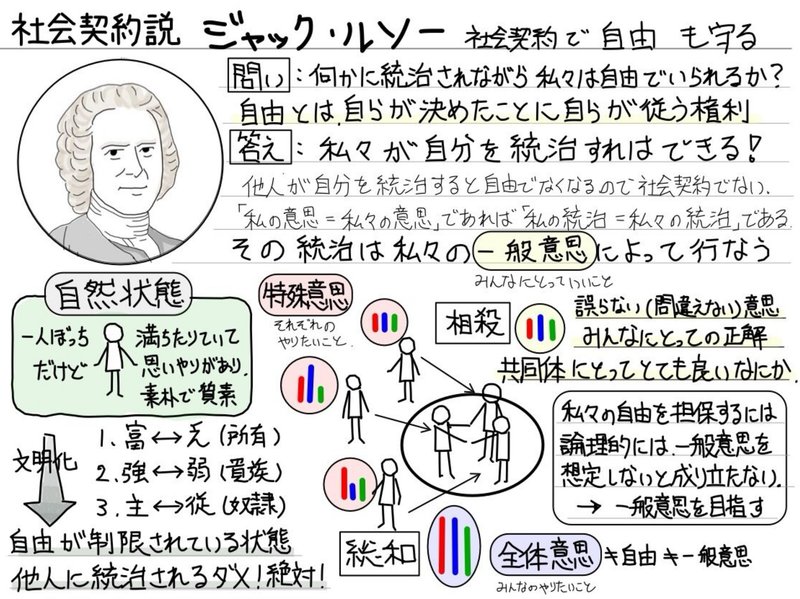 社会契約説 ジャック・ルソー 社会契約で自由も守る
問い：何かに統治されながら私々は自由でいられるか？
自由とは、自らが決めたことに自らが従う権利
答え：私々が自分を統治すればできる！
他人が自分を統治すると自由でなくなるので社会契約でない.
「私の意思＝私々の意思」であれば「私の統治＝私々の統治」である.
その統治は私々の一般意思によって行なう
みんなにとっていいこと
自然状態
一人ぼっち
だけど
満ちたりていて
思いやりがあり.
素朴で質素
文明化
1. 富↔乏(所有)
2. 強↔弱(貴族)
3. 主↔従(奴隷)
自由が制限されている状態
他人に統治されるダメ！絶対！
特殊意思
それぞれの
やりたいこと.
相殺
誤らない(間違えない)意思
みんなにとっての正解
共同体にとってとても良いなにか.
私々の自由を担保するには
論理的には、一般意思を
想定しないと成り立たない.
→ 一般意思を目指す
総和
全体意思 ≠自由≠一般意思
みんなのやりたいこと